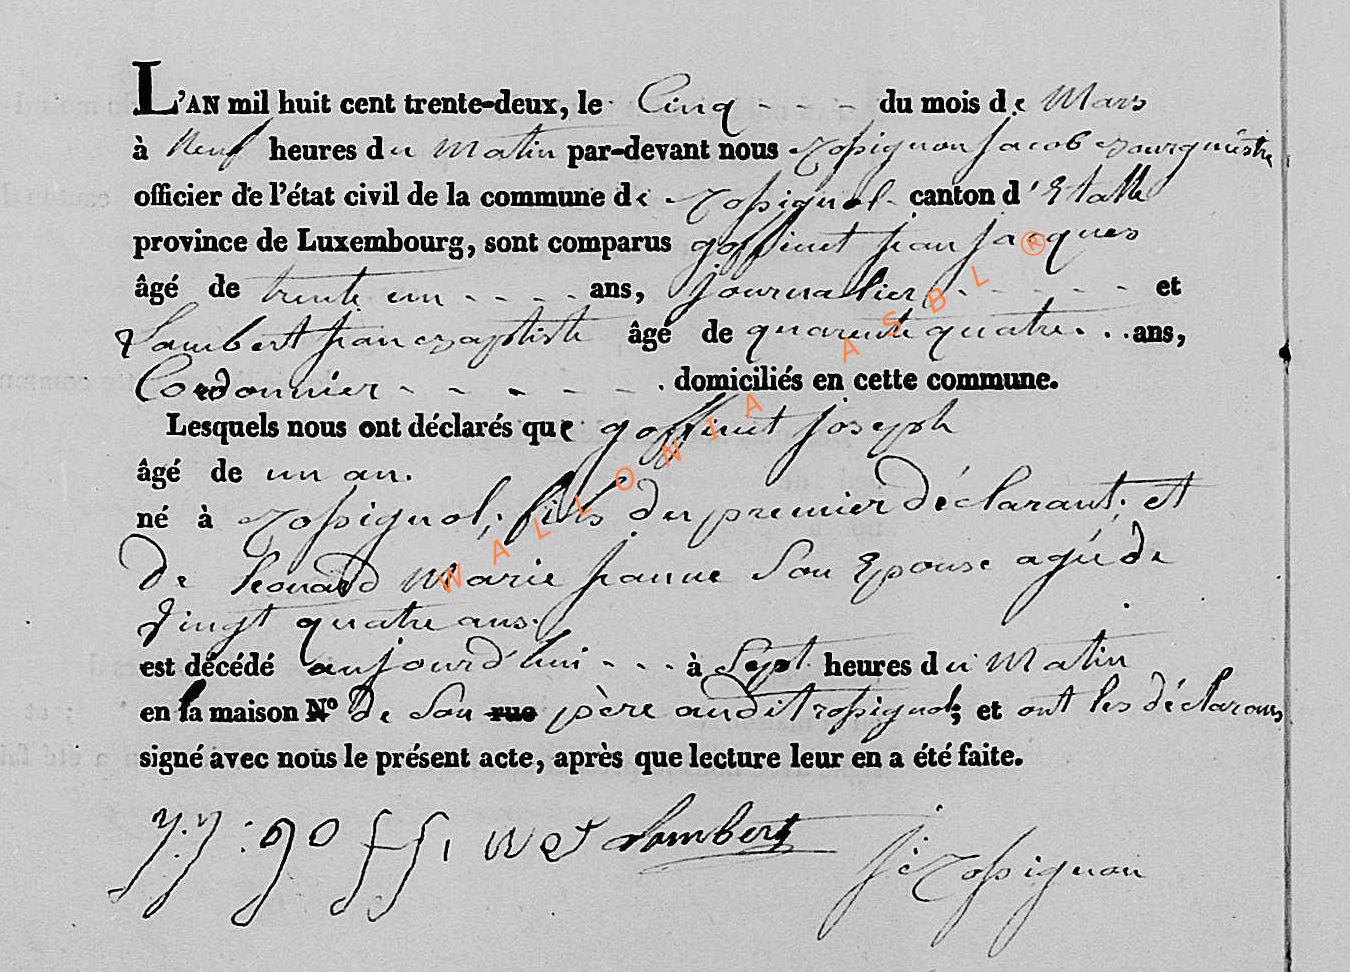 L'AN mil huit cent trente-deux, le Cinq - - - du mois de Mars
à Neuf heures du Matin par-devant nous Rossignon Jacob Bourgmestre
officier de l'état civil de la commune de Rossignol canton d'Etalle
province de Luxembourg, sont comparus goffinet jean jacques
âgé de trente un - - - - ans, journallier - - - - - et
Lambert jean Baptiste âgé de quarente quatre . . . ans,
Cordonnier - - - - - - . domiciliés en cette commune.
Lesquels nous ont déclarés que goffinet joseph
âgé de un an.
né à Rossignol, fils du premier déclarant, et
de Leonard Marie jeanne Son Epouse agée de
Vingt quatre ans.
est décédé aujourd'hui - - - à Sept heures du Matin
en la maison N° de Son rue père audit rossignol; et ont les déclarans
signé avec nous le présent acte, après que lecture leur en a été faite.
j.j : goffinet Lambert
jc Rossignon
WALLONIA ASBL ®